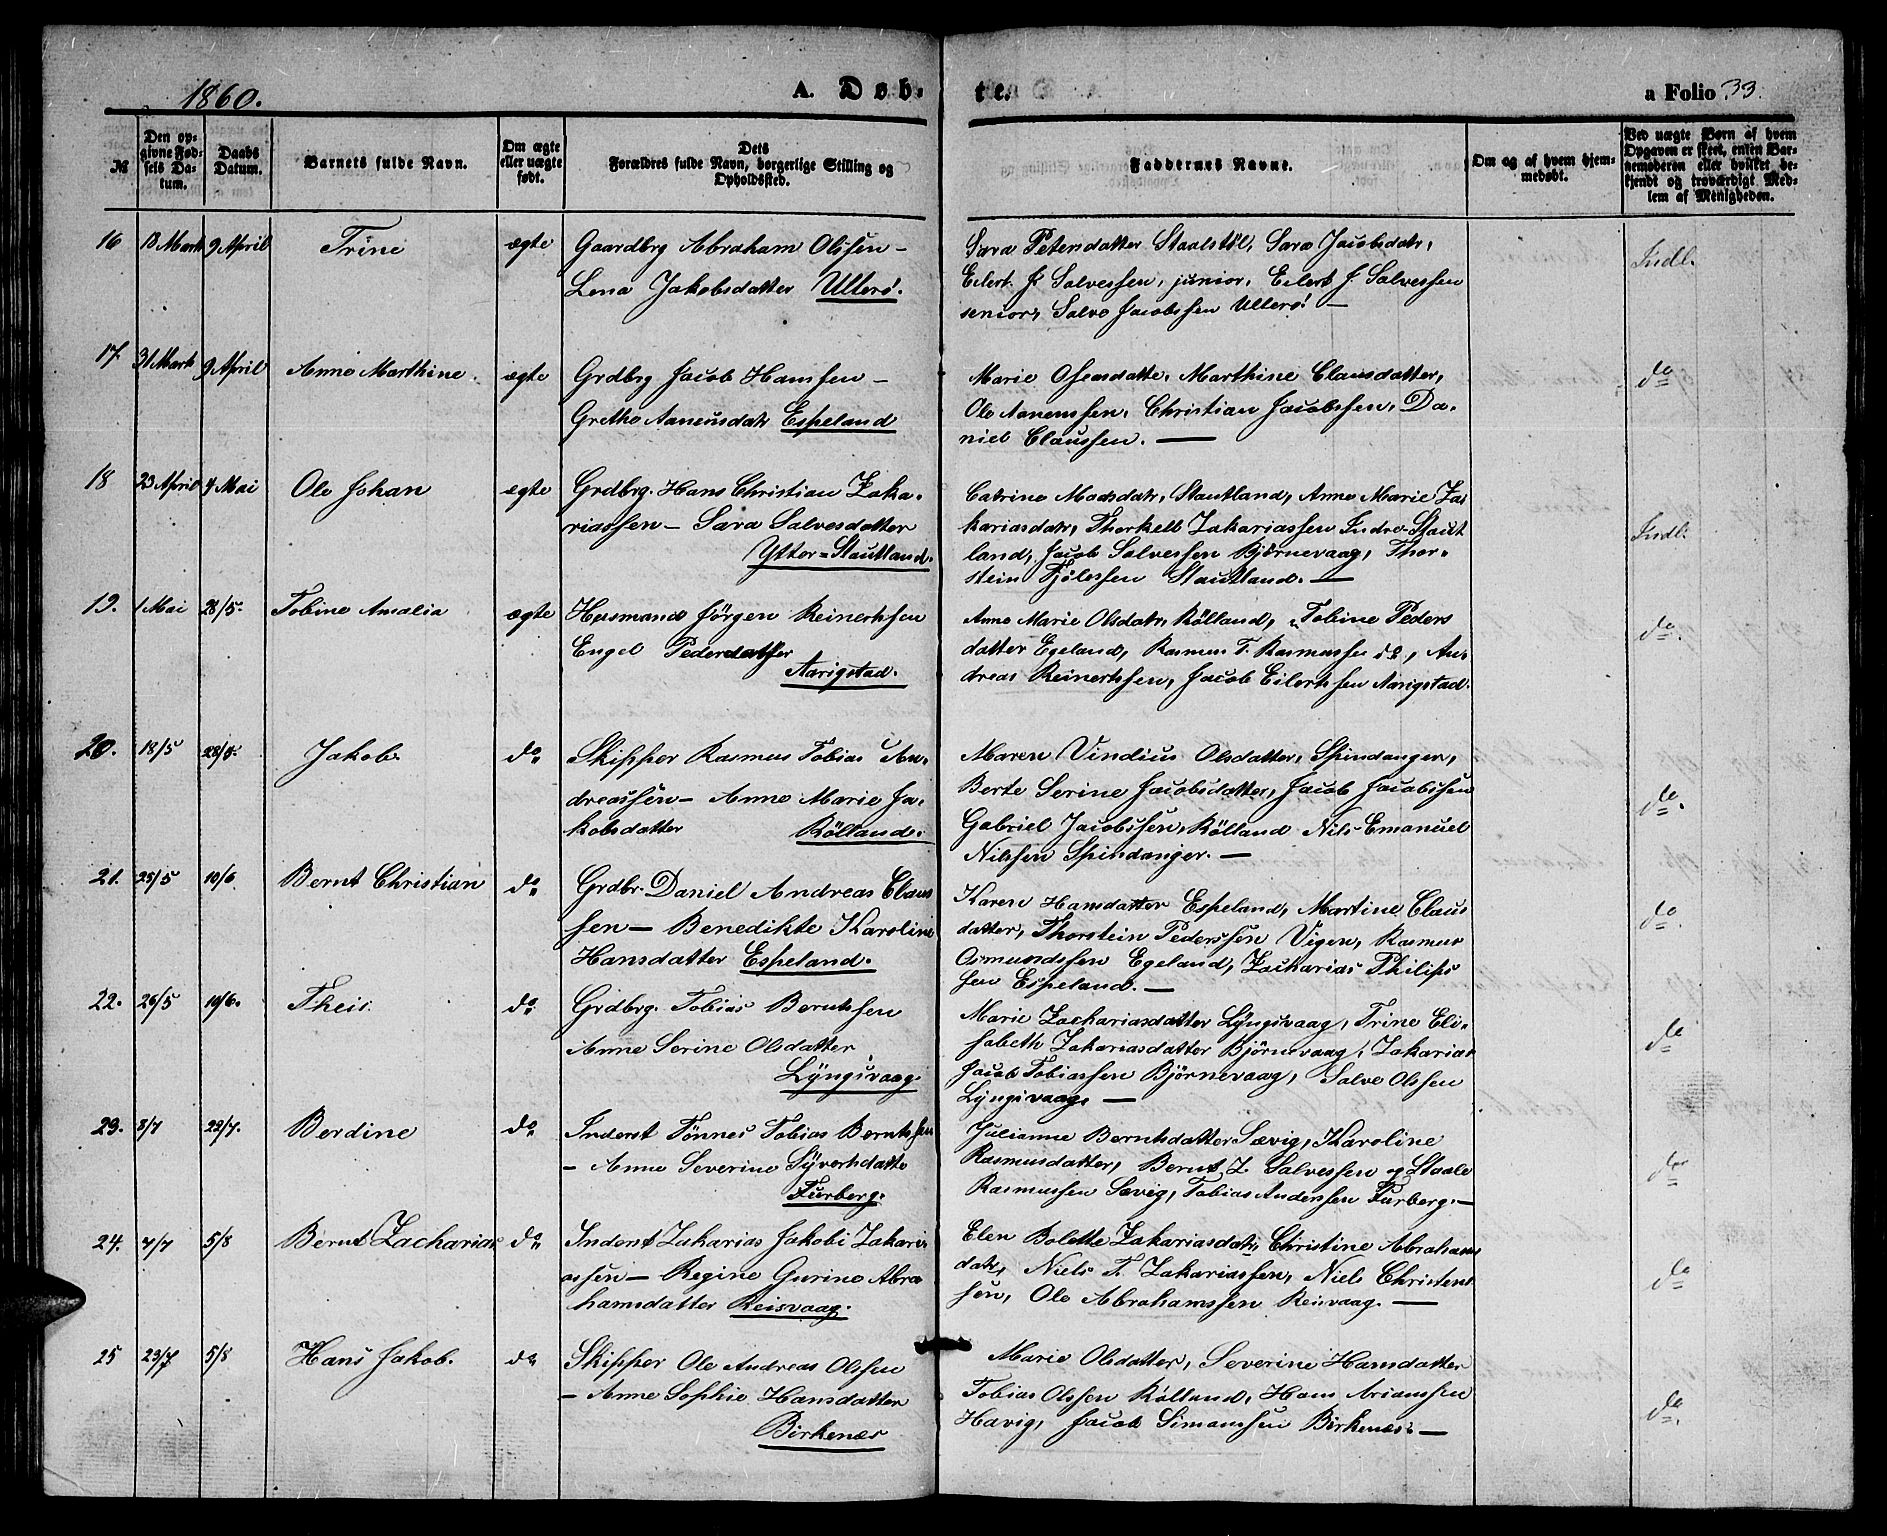 1860.
A. Døb-
te.
a Folio 33.
№
Den op-
givne Fød-
sels Da-
tum.
Daabs
Datum.
Barnets fulde Navn.
Om ægte
eller uægte
født.
Dets
Forældres fulde Navn, borgerlige Stilling og
Opholdssted.
Faddernes Navne.
Om og af hvem hjem-
medøbt.
Ved uægte Børn af hvem
Opgaven er skeet, enten Bar-
nemoderen eller hvilket be-
kjendt og troværdigt Med-
lem af Menigheden.
16 13 Marts 9 April Trine ægte Gaardbrg Abraham Olssen -
Lena Jakobsdatter Ullerø.
Sara Petersdatter Staalstøl, Sara Jacobsdatr,
Eilert J. Salvessen, junior, Eilert J. Salvessen
senior, Salve Jacobssen Ullerø! -
Indl.
17. 31 Marts 9 April Anne Marthine. ægte Grdbrg Jacob Hanssen -
Grethe Aanensdatr Espeland
Marie Osensdatte, Marthine Clausdatter,
Ole Aanenssen, Christian Jacobssen, Da-
niel Claussen. -
do
18 23 April 4 Mai Ole Johan ægte Grdbrg. Hans Christian Zaka-
riassen - Sara Salvesdatter
Ytter=Stautland.
Catrine Madsdatr, Stautland, Anne Marie Za-
kariasdatr, Thorkell Zakariassen Indre-Staut
land, Jacob Salvessen Bjørnevaag, Thor-
stein Fjølessen Stautland. -
Indl.
19. 1 Mai 28/5. Tobine Amalia ægte Husmand Jörgen Reinertssen
Engel Pedersdatter
Aarigstad.
Anne Marie Olsdatr, Rölland, Tobine Peders
datter Egeland, Rasmus T. Rasmussen do, An-
dreas Reinertssen, Jacob Eilertssen Aarigstad.
do.
20. 18/5 28/5. Jakob. do Skipper Rasmus Tobias An-
dreassen - Anne Marie Ja-
kobsdatter Rölland.
Maren Vindius Olsdatter, Spindanger,
Berte Serine Jacobsdatter, Jacob Jacobssen
Gabriel Jacobssen, Rölland Nils Emanuel
Nilssen Spindanger. -
do.
21. 25/5 10/6 Bernt Christian do Grdbr. Daniel Andreas Claus
sen - Benedikte Karoline
Hansdatter Espeland.
Karen Hansdatter Espeland, Martine Claus
datter, Thorstein Pederssen Vigen, Rasmus
Osmundssen Egeland, Zackarias Philips
sen Espeland. -
do.
22. 26/5 10/6. Theis. do Grdbrg. Tobias Berntssen
Anne Serine Olsdatter,
Lyngsvaag.
Marie Zachariasdatter Lyngsvaag, Trine Eli-
sabeth Zakariasdatter Björnevaag, Zakarias
Jacob Tobiassen Björnevaag, Salve Olssen
Lyngsvaag. -
do
23. 8/7 22/7. Berdine do Inderst Tønnes Tobias Berntssen
- Anne Severine Syvertsdatte
Furberg.
Julianne Berntsdatter Sævig, Karoline
Rasmusdatter, Bernt Z. Salvessen og Staale
Rasmussen Sævig, Tobias Anderssen Furberg. -
do
24. 7/7 5/8 Bernt Zacharias do Inderst Zakarias Jakobi Zakari-
assen - Regine Gurine Abra
hamsdatter Reisvaag.
Elen Bolette Zakariasdatr, Christine Abrahams
datr, Niels T. Zakariassen, Niels Christens
sen, Ole Abrahamssen Reisvaag. -
do
25 23/7 5/8 Hans Jakob. do Skipper Ole Andreas Olssen
- Anne Sophie Hansdatter
Birkenæs
Marie Olsdatter, Severine Hansdatter
Tobias Olssen Rölland, Hans Arianssen
Havig, Jacob Simonssen Birkenæs. -
do.